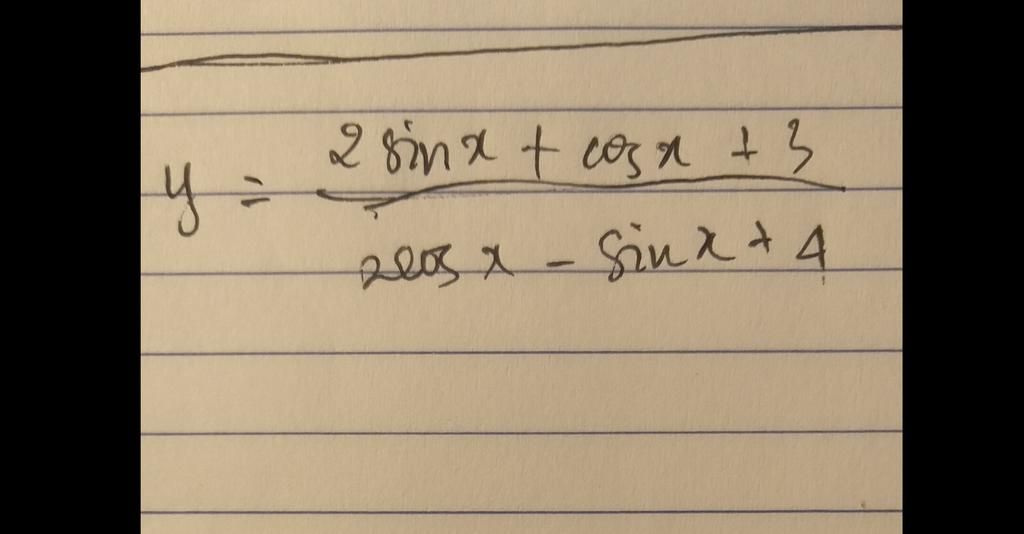 y = \frac{2 sin x + cos x + 3}{2cos x - sin x + 4}